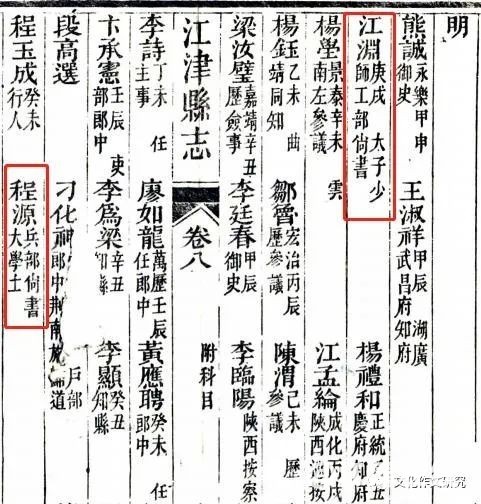 明
熊誠 永樂甲申 御史 王淑祥 甲辰 湖廣武昌府知府
江淵 庚戌 太子少師工部尚書 楊禮和 正統 慶府知府
楊學 景泰辛未 雲南左參議 江孟綸 成化丙戌 陝西按
楊鈺 乙未 曲靖同知 鄒 宏治丙辰 歷參議 陳渭 己未 歷參議
梁汝璧 嘉靖辛丑 歷僉事 李廷春 甲辰 御史 李臨陽 陝西按察
江津縣志 卷八 附科目
李詩 丁未 任主事 廖如龍 萬曆壬辰 任郎中 黃應聘 癸未 任郎中
卞承憲 壬辰 吏部郎中 李爲梁 辛丑 知縣 李顯 癸丑 知縣
段高選 刁化神 戶部郎中荆南 道
程玉成 癸未 行人 程源 兵部尚書大學士
文化作文研究